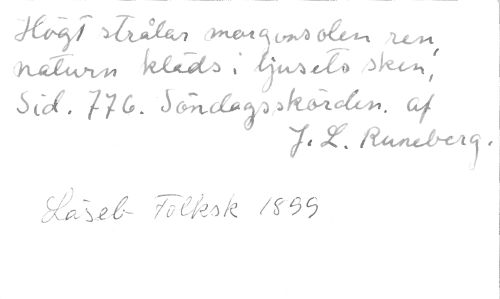 Högt strålar morgonsolen ren,
naturn kläds i ljusets sken,
Sid. 776. Söndagsskörden. af
J. L. Runeberg.
Läseb Folksk 1899